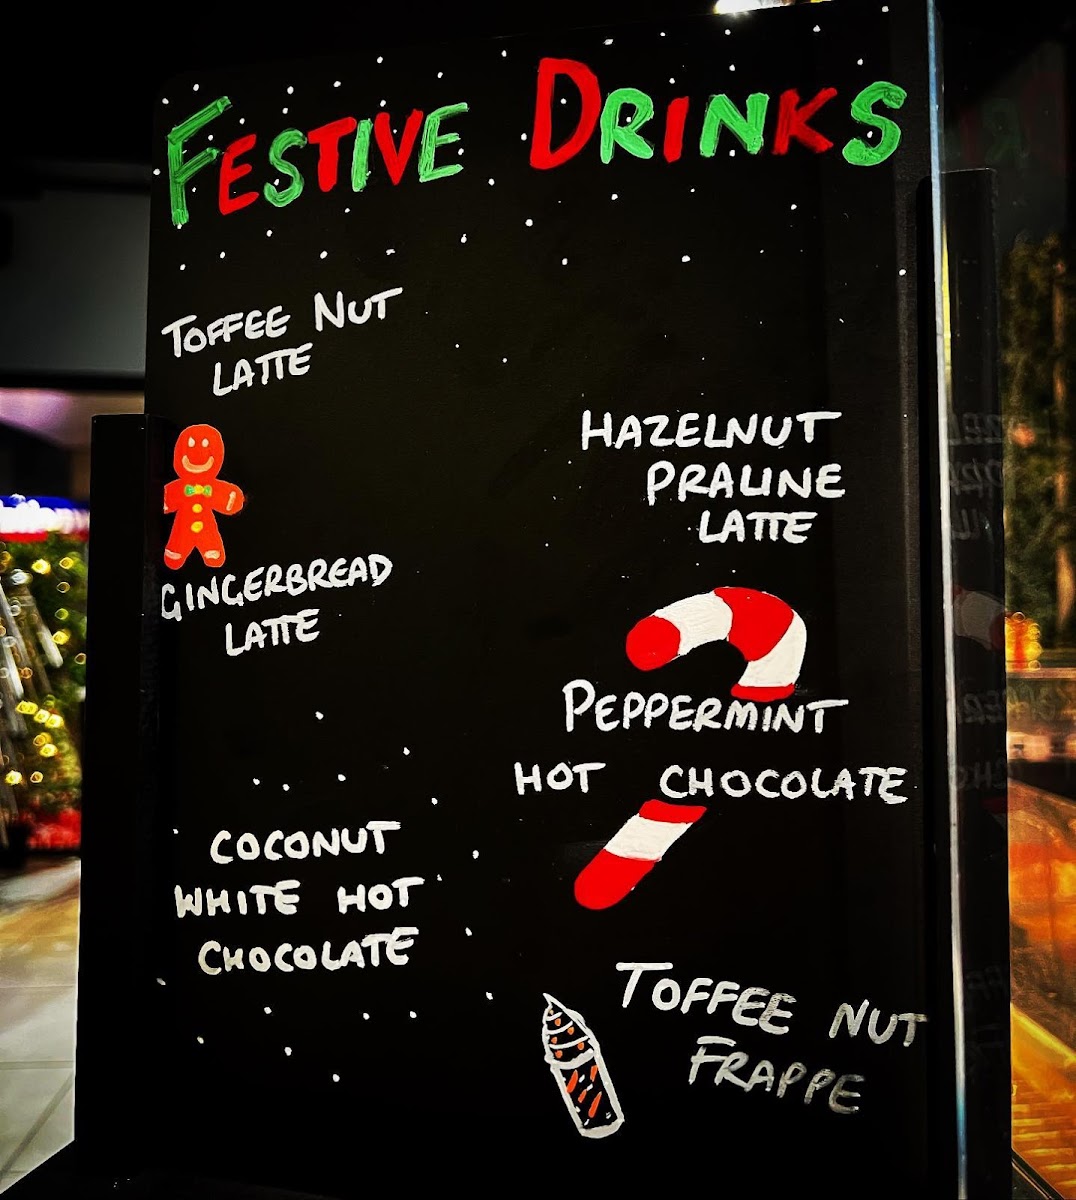 FESTIVE DRINKS
TOFFEE NUT
LATTE
GINGERBREAD
LATTE
COCONUT
WHITE HOT
CHOCOLATE
HAZELNUT
PRALINE
LATTE
PEPPERMINT
HOT CHOCOLATE
TOFFEE NUT
FRAPPE